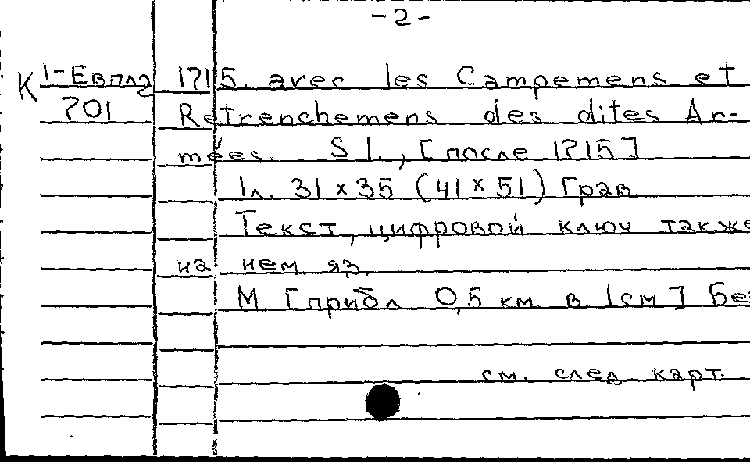 -2-
К 1-Евпл2 1715. avec les Campemens et
701 Retrenchemens des dites Ar-
mées. S.l., [после 1715]
1л. 31×35 (41×51) Грав
Текст, цифровой ключ также
на нем яз.
М [прибл 0,5 км в 1см] Без
см. след. карт.